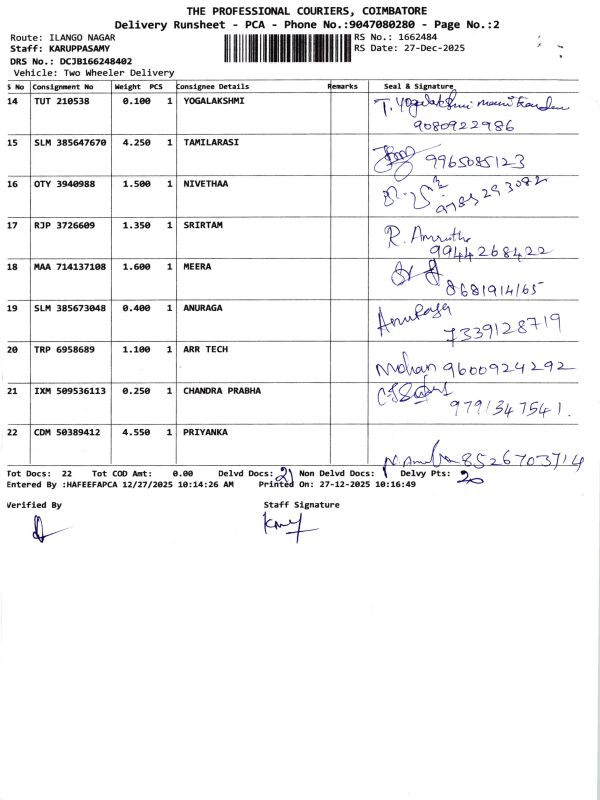 THE PROFESSIONAL COURIERS, COIMBATORE
Delivery Runsheet - PCA - Phone No.:9047080280 - Page No.:2
Route: ILANGO NAGAR RS No.: 1662484
Staff: KARUPPASAMY RS Date: 27-Dec-2025
DRS No.: DCJB166248402
Vehicle: Two Wheeler Delivery
S No Consignment No Weight PCS Consignee Details Remarks Seal & Signature
14 TUT 210538 0.100 1 YOGALAKSHMI T. Yogalakshmi
9080922986
15 SLM 385647670 4.250 1 TAMILARASI 9965085123
16 OTY 3940988 1.500 1 NIVETHAA
17 RJP 3726609 1.350 1 SRIRTAM R. Amrutha
9944268422
18 MAA 714137108 1.600 1 MEERA
8681914165
19 SLM 385673048 0.400 1 ANURAGA Anuraga
7339128719
20 TRP 6958689 1.100 1 ARR TECH Mohan 9600924292
21 IXM 509536113 0.250 1 CHANDRA PRABHA
9791347541.
22 CDM 50389412 4.550 1 PRIYANKA
8526703714
Tot Docs: 22 Tot COD Amt: 0.00 Delvd Docs: 21 Non Delvd Docs: 1 Delvy Pts: 20
Entered By :HAFEEFAPCA 12/27/2025 10:14:26 AM Printed On: 27-12-2025 10:16:49
Verified By Staff Signature